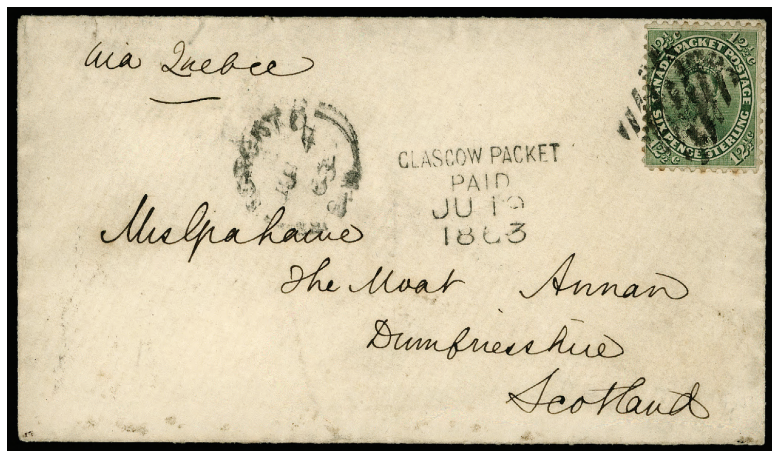 via Quebec
12½c 12½c
CANADA PACKET POSTAGE
SIX PENCE STERLING
12½c 12½c
GLASGOW PACKET
PAID
JU 19
1863
Mrs Grahame
The Moat Annan
Dumfriesshire
Scotland